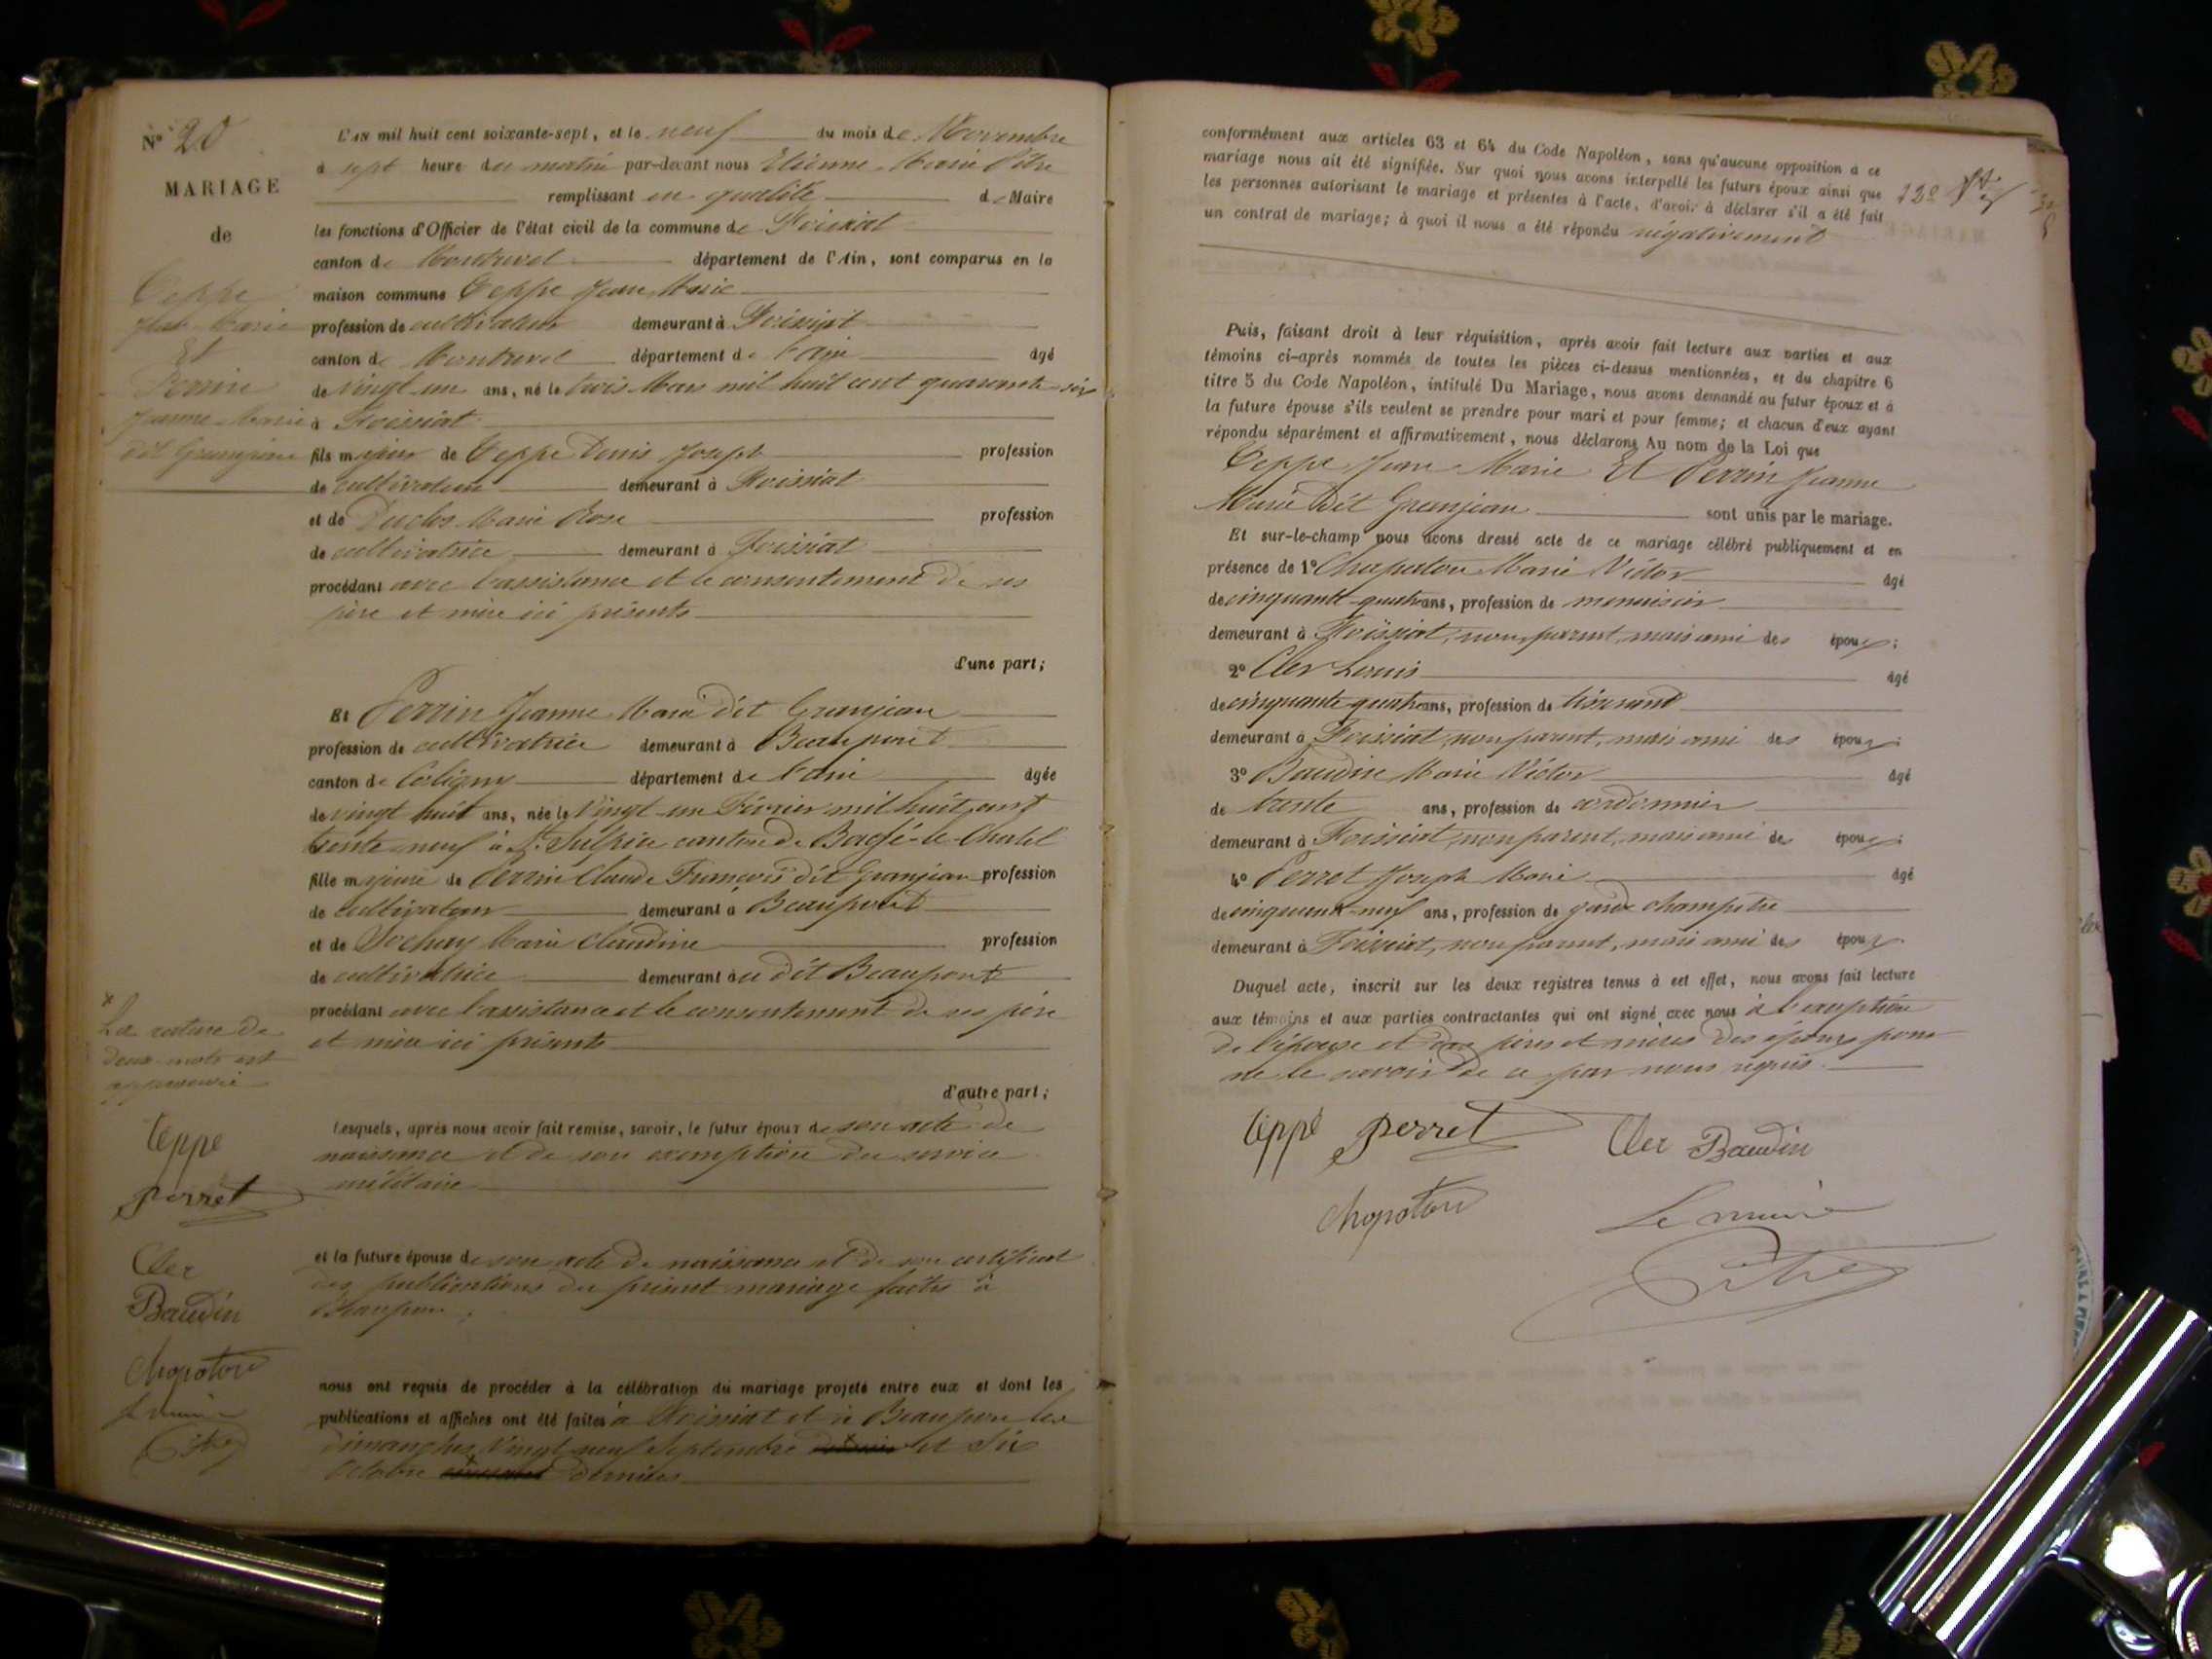 N° 20
MARIAGE
de
Teppe
Jean Marie
Et
Perrin
Jeanne-Marie
dit Granjean
L'an mil huit cent soixante-sept, et le neuf du mois de Novembre
à sept heure du matin par-devant nous Etienne Marie Pitre
remplissant en qualité de Maire
les fonctions d'Officier de l'état civil de la commune de Foissiat
canton de Montrevel département de l'Ain, sont comparus en la
maison commune Teppe Jean Marie
profession de cultivateur demeurant à Foissiat
canton de Montrevel département de l'ain âgé
de vingt un ans, né le trois Mars mil huit cent quarante-six
à Foissiat
fils majeur de Teppe Denis Joseph profession
de cultivateur demeurant à Foissiat
et de Duclos Marie Rose profession
de cultivatrice demeurant à Foissiat
procédant avec l'assistance et le consentement de ses
père et mère ici présents
d'une part;
Et Perrin Jeanne Marie dit Granjean
profession de cultivatrice demeurant à Beaupont
canton de Coligny département de l'ain âgée
de vingt huit ans, née le vingt-un Février mil huit cent
trente neuf à St Sulpice canton de Bagé-le-Chatel
fille majeure de Perrin Claude François dit Granjean profession
de cultivateur demeurant à Beaupont
et de Sochay Marie Claudine profession
de cultivatrice demeurant à u dit Beaupont
procédant avec l'assistance et le consentement de ses père
et mère ici présents
d'autre part;
Lesquels, après nous avoir fait remise, savoir, le futur époux de son acte de
naissance et de son exemption du service
militaire
et la future épouse de son acte de naissance et de son certificat
des publications du présent mariage faites à
Beaupont.
nous ont requis de procéder à la célébration du mariage projeté entre eux et dont les
publications et affiches ont été faites à Foissiat et à Beaupont les
dimanches Vingt neuf Septembre et Six
Octobre derniers
* La rature de
deux mots est
approuvée
Teppe
Perret
Cler
Baudin
Chapatou
Le maire
Pitre
conformément aux articles 63 et 64 du Code Napoléon, sans qu'aucune opposition à ce
mariage nous ait été signifiée. Sur quoi nous avons interpellé les futurs époux ainsi que
les personnes autorisant le mariage et présentes à l'acte, d'avoir à déclarer s'il a été fait
un contrat de mariage; à quoi il nous a été répondu négativement
Puis, faisant droit à leur réquisition, après avoir fait lecture aux parties et aux
témoins ci-après nommés de toutes les pièces ci-dessus mentionnées, et du chapitre 6
titre 5 du Code Napoléon, intitulé Du Mariage, nous avons demandé au futur époux et à
la future épouse s'ils veulent se prendre pour mari et pour femme; et chacun d'eux ayant
répondu séparément et affirmativement, nous déclarons Au nom de la Loi que
Teppe Jean Marie Et Perrin Jeanne
Marie Dit Granjean sont unis par le mariage.
Et sur-le-champ nous avons dressé acte de ce mariage célébré publiquement et en
présence de 1° Chapatou Marie Victor âgé
de cinquante-quatre ans, profession de menuisier
demeurant à Foissiat, non parent, mais ami des époux;
2° Cler Louis âgé
de cinquante quatre ans, profession de tisserand
demeurant à Foissiat, non parent, mais ami des époux;
3° Baudin Marie Victor âgé
de trente ans, profession de cordonnier
demeurant à Foissiat, non parent, mais ami des époux;
4° Perret Joseph Marie âgé
de cinquante-neuf ans, profession de garde champetre
demeurant à Foissiat, non parent, mais ami des époux
Duquel acte, inscrit sur les deux registres tenus à cet effet, nous avons fait lecture
aux témoins et aux parties contractantes qui ont signé avec nous à l'exception
de l'épouse et des pères et mères des époux pour
ne le savoir de ce par nous requis.
Teppe Perret Cler Baudin
Chapatou Le maire
Pitre